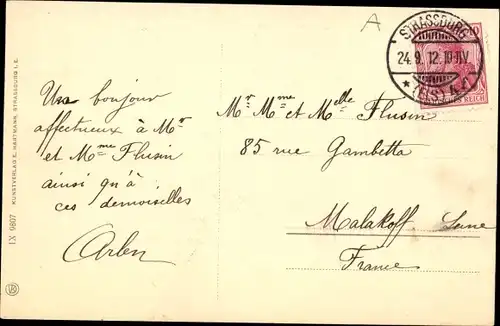 A
STRASSBURG
24.9.12.10-11V
* (ELS) 4 *
DEUTSCHES REICH
Un bonjour
affectueux à Mr
et Mme Flusin
ainsi qu'à
ces demoiselles
Arlen
Mr Mme et Melle Flusin
85 rue Gambetta
Malakoff. Seine
France
IX 9607 KUNSTVERLAG E. HARTMANN, STRASSBURG I. E.